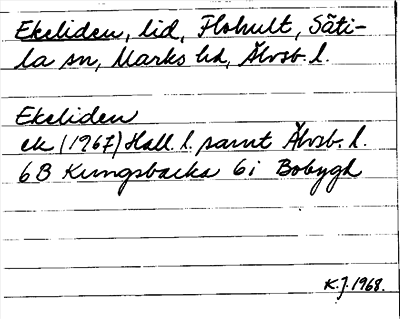 Ekeliden, lid, Flohult, Säti-
la sn, Marks hd, Älvsb. l.
Ekeliden
ek (1967) Hall. l. samt Älvsb. l.
6B Kungsbacka 6i Bobygh
K.J. 1968.